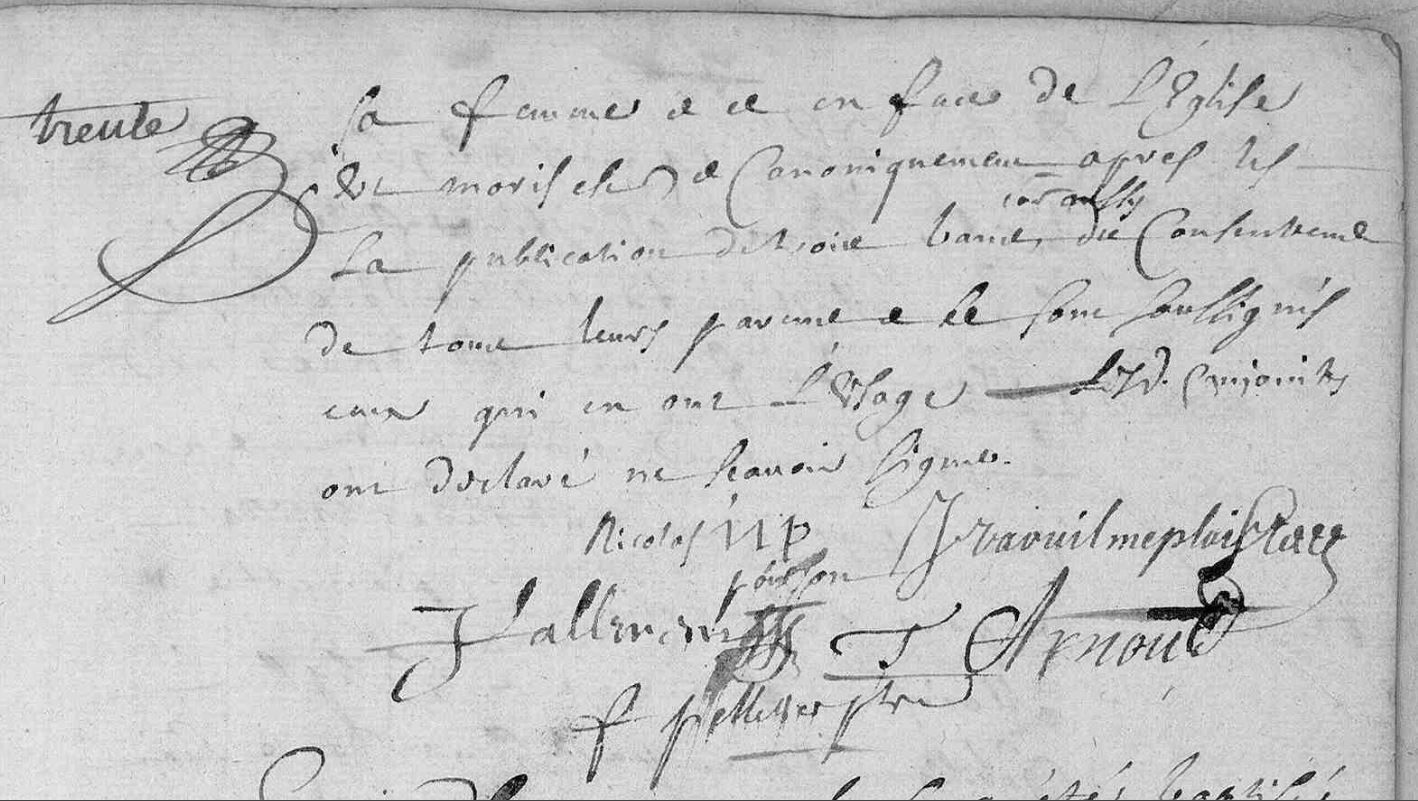 trente
sa femme et ce en face de L'Eglise
et canoniquement apres les
cor aussy
La publication de trois banc, du Consentement
de tous leurs parents et se sont soussignés
ceux qui en ont L'Usage Lesd. Conjoints
ont declaré ne scavoir signer.
Nicolas NP
poisson
J Lallement J Arnould
f pelletier ptre
été baptisé